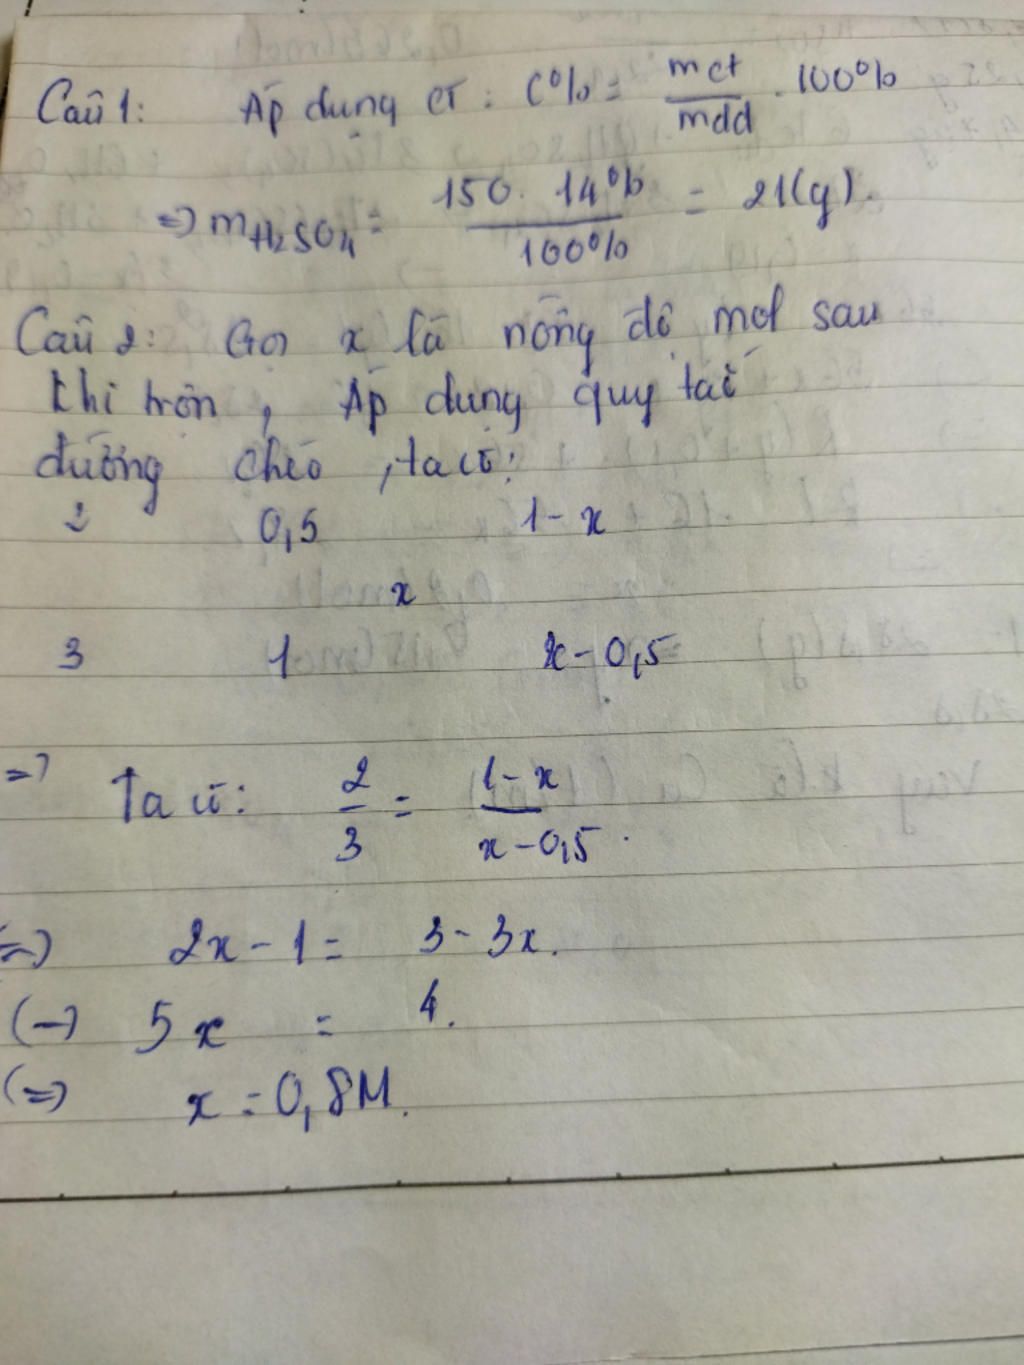 Câu 1: Áp dụng CT: C% = mct / mdd . 100%
=> mH₂SO₄ = 150. 14% / 100% = 21(g).
Câu 2: Gọi x là nồng độ mol sau
khi trộn, Áp dụng quy tắc
đường chéo, ta có:
2 0,5 1 - x
x
3 1 x - 0,5
=> Ta có: 2/3 = 1-x / x-0,5.
<=> 2x - 1 = 3 - 3x.
<=> 5x = 4.
<=> x = 0,8M.